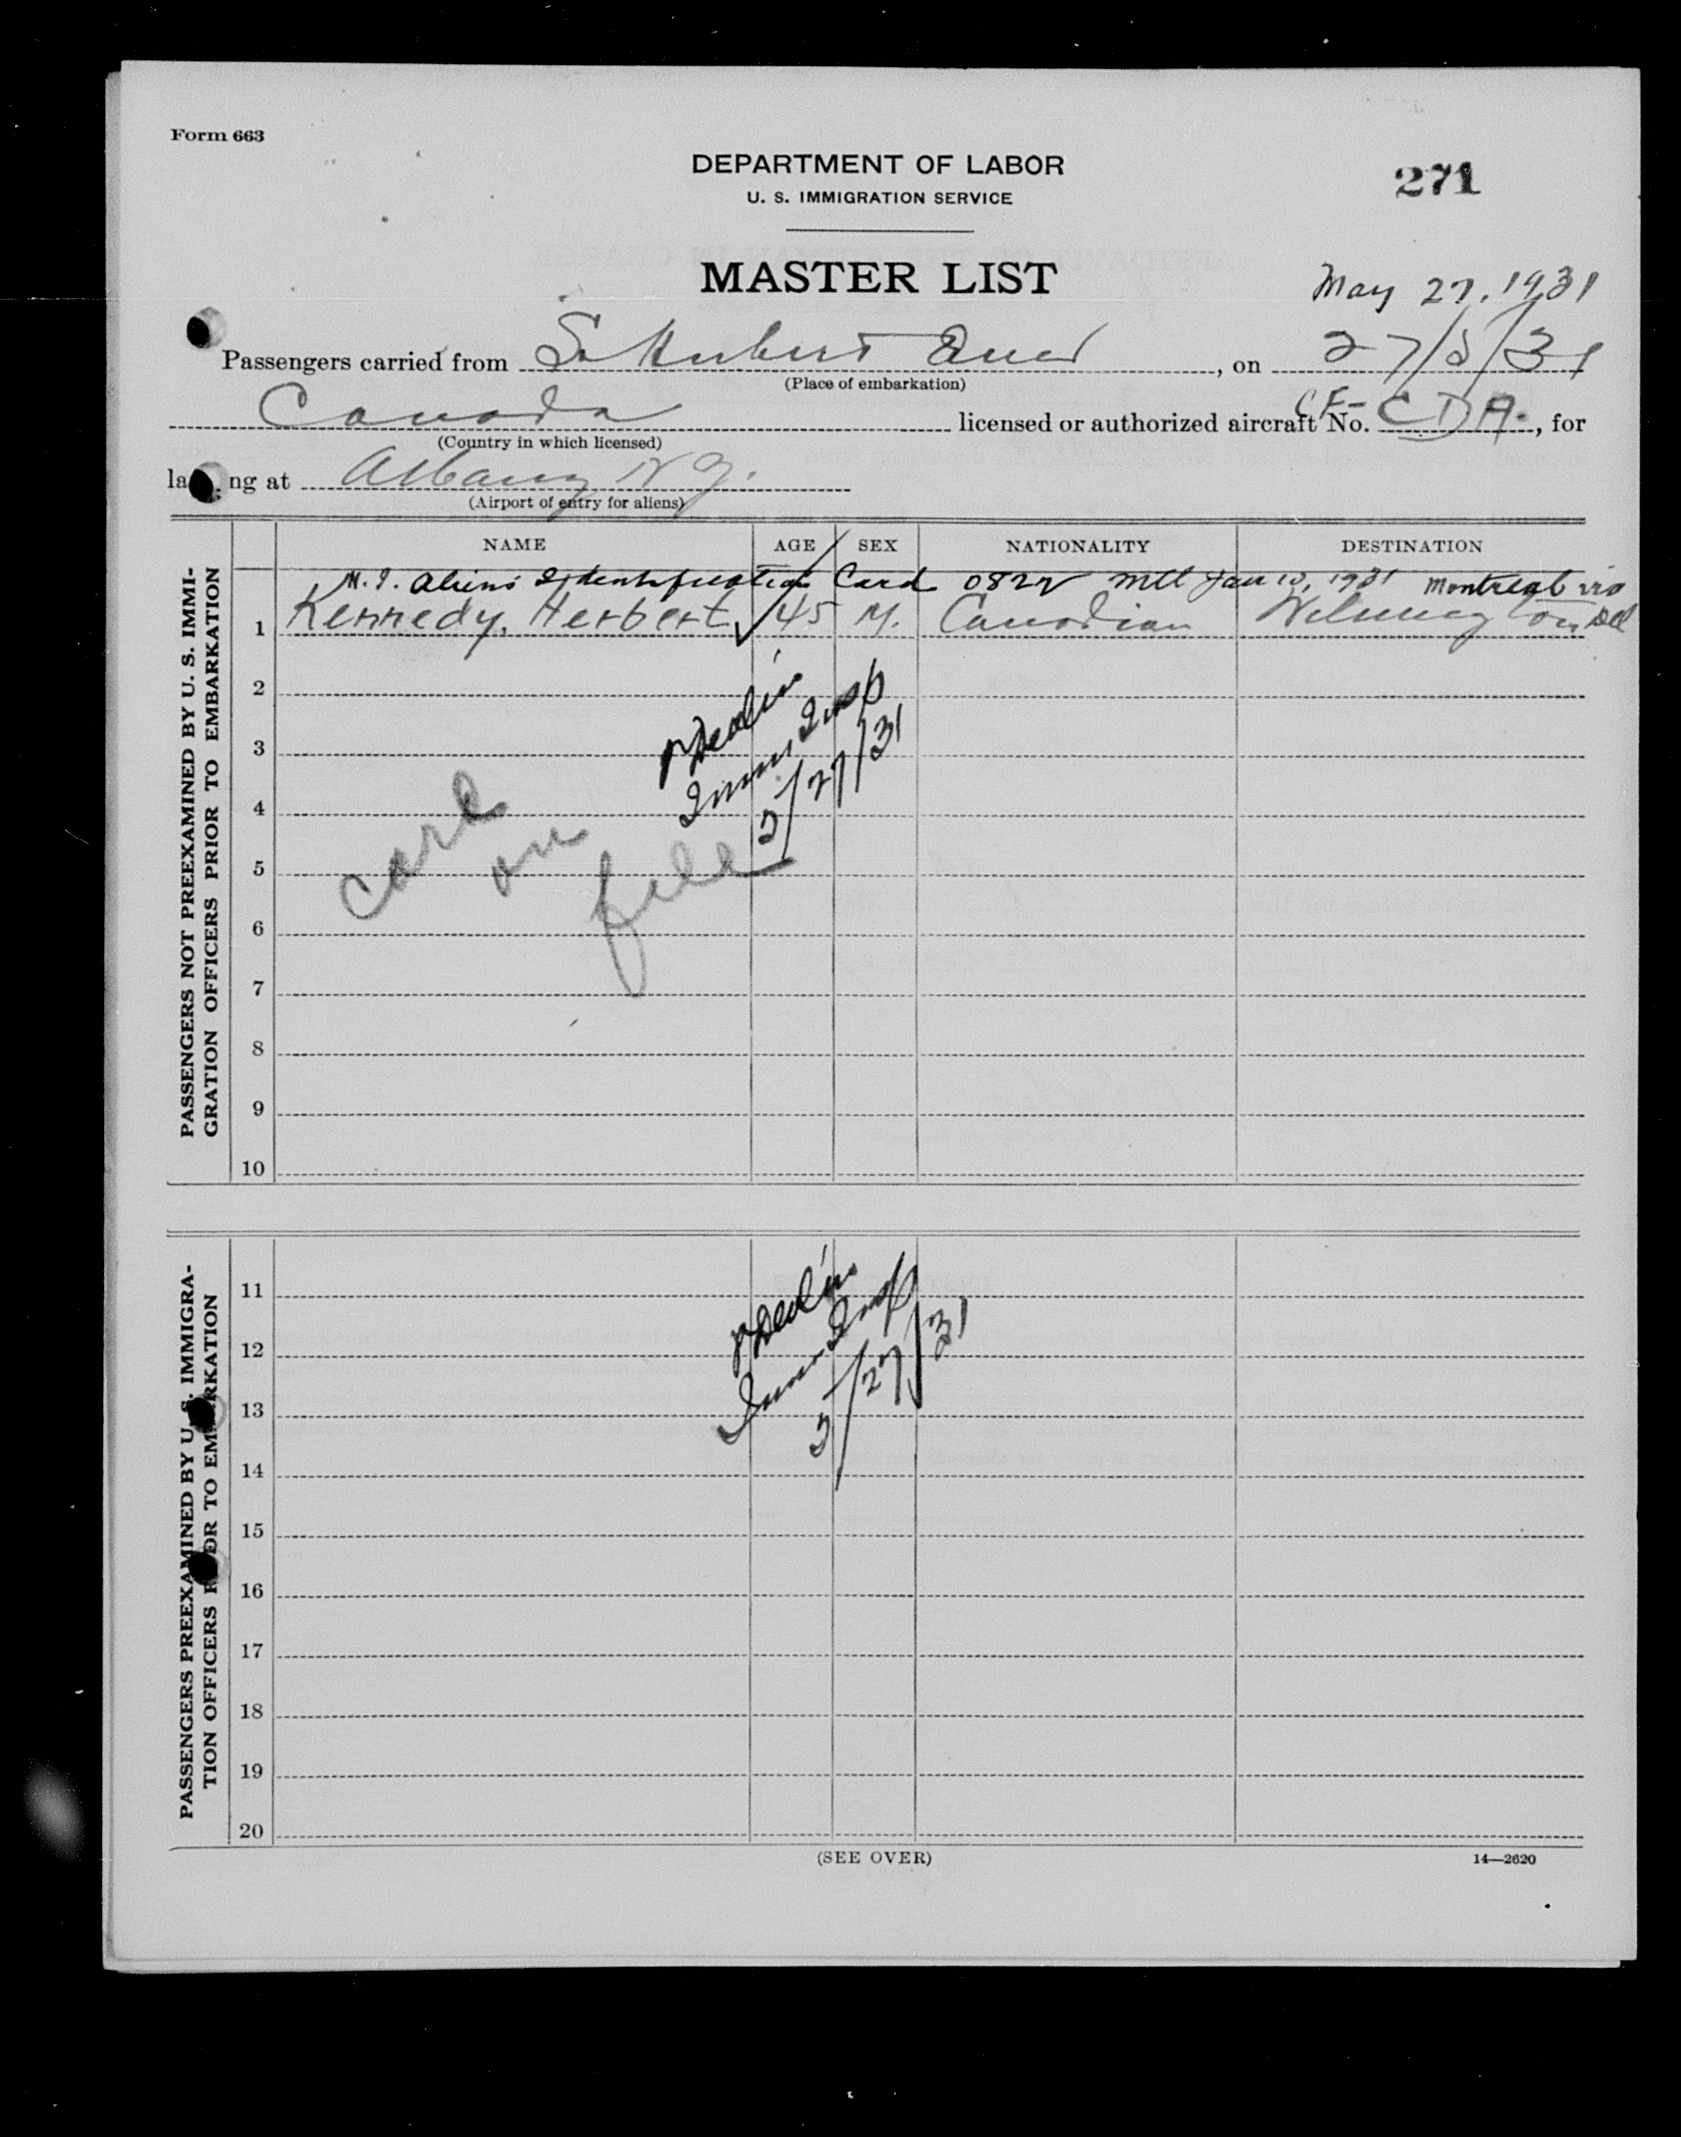 Form 663
DEPARTMENT OF LABOR
U. S. IMMIGRATION SERVICE
271
MASTER LIST
May 27, 1931
Passengers carried from St Hubert Que , on 27/5/31
(Place of embarkation)
Canada licensed or authorized aircraft No. CF-CDA., for
(Country in which licensed)
la ng at Albany N Y.
(Airport of entry for aliens)
NAME AGE SEX NATIONALITY DESTINATION
PASSENGERS NOT PREEXAMINED BY U. S. IMMI-
GRATION OFFICERS PRIOR TO EMBARKATION
Aliens Identification Card 0822 Mtl Jan 10, 1931 Montreal
1 Kennedy, Herbert 45 M. Canadian Wilmington Del
2
3
4
5
6
7
8
9
10
Immig Insp
5/27/31
Card
on
file
PASSENGERS PREEXAMINED BY U. S. IMMIGRA-
TION OFFICERS P OR TO EM RKATION
11
12
13
14
15
16
17
18
19
20
Immig Insp
5/27/31
(SEE OVER)
14—2620